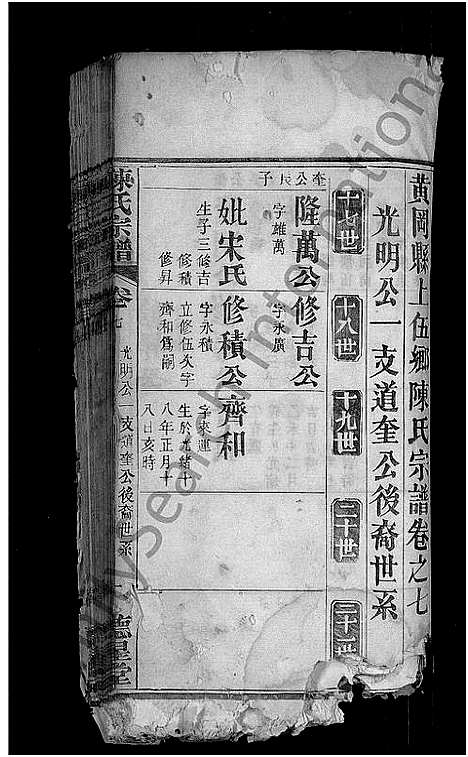 黄岡縣上伍鄉陳氏宗譜卷之七
光明公一支道奎公後裔世系
十七世
十八世
十九世
二十世
二十一世
奎公長子
隆萬公
字雄萬
妣宋氏
生子三修吉
修積
修昇
修吉公
字永廣
修積公
字永積
立修伍次字
齊和爲嗣
齊和
字來運
生於光緒十
八年正月十
八日亥時
陳氏宗譜
卷七
光明公一支道奎公後裔世系
德星堂
MySearch International